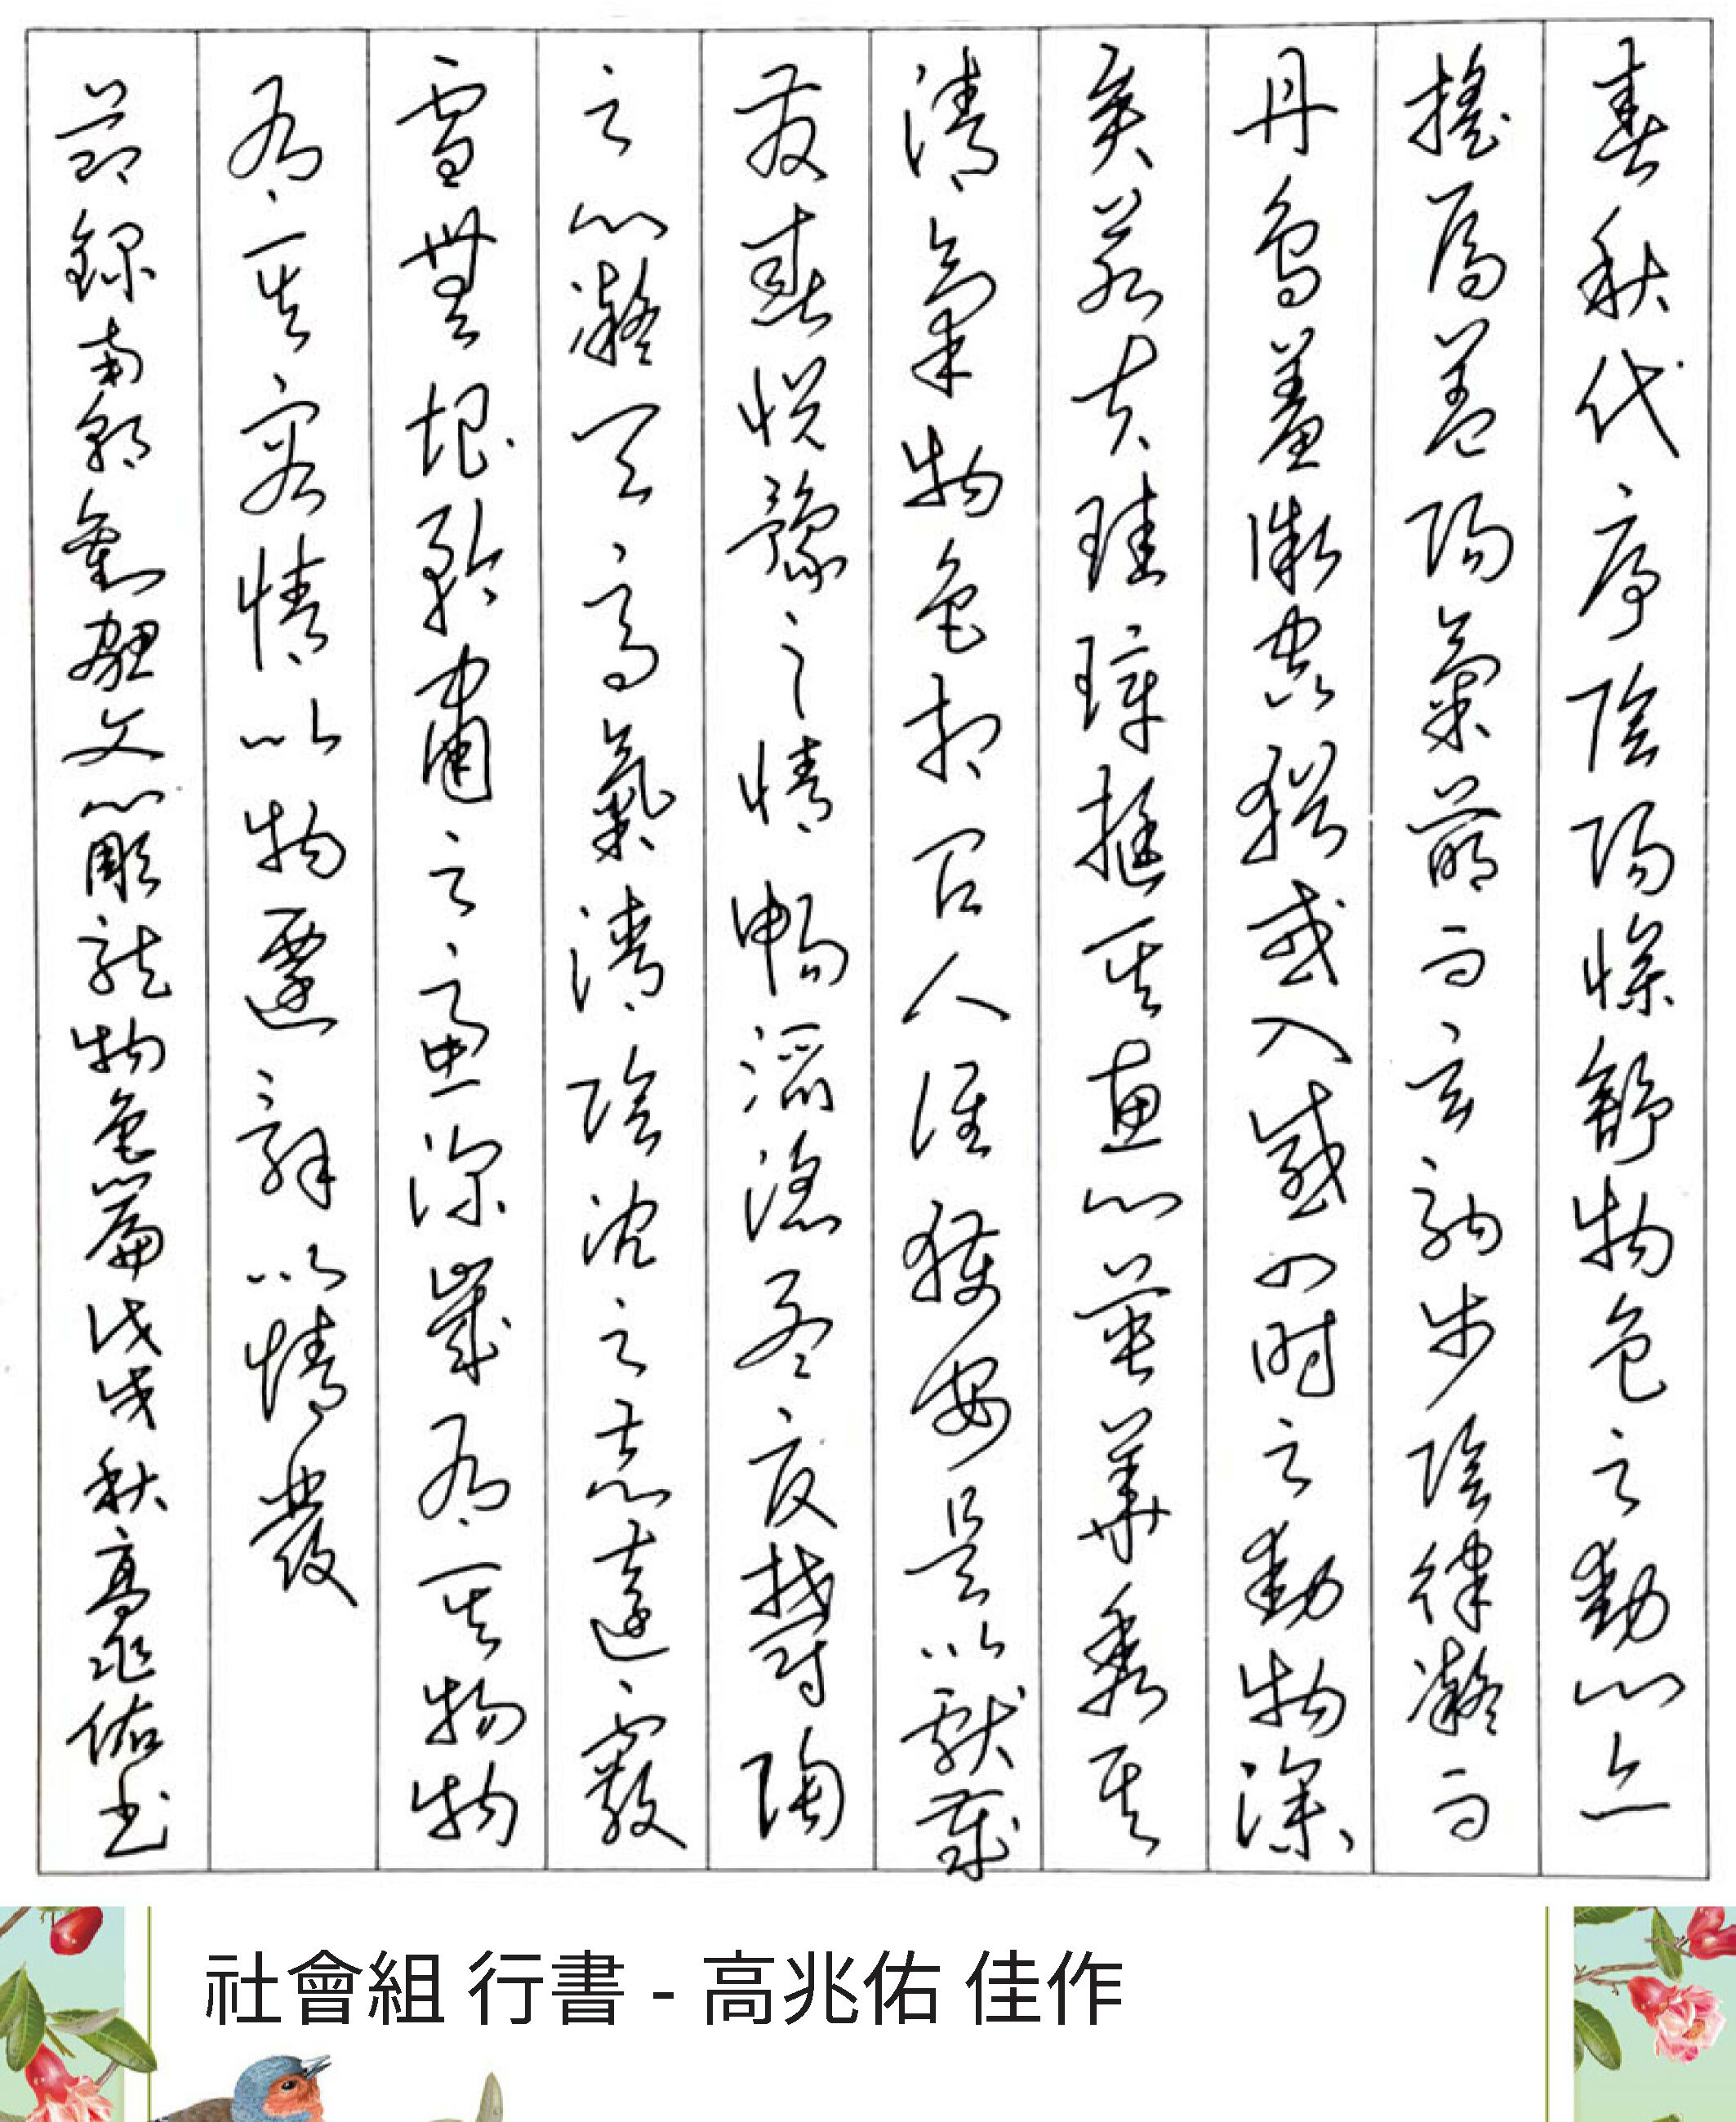 春秋代序陰陽慘舒物色之動心亦
搖焉蓋陽氣萌而玄駒步陰律凝而
丹鳥羞微蟲猶或入感四時之動物深
矣若夫珪璋挺其惠心英華秀其
清氣物色相召人誰獲安是以獻歲
發春悅豫之情暢滔滔孟夏鬱陶
之心凝天高氣清陰沈之志遠霰
雪無垠矜肅之慮深歲有其物物
有其容情以物遷辭以情發
節錄南朝劉勰文心雕龍物色篇戊戌秋高兆佑書
社會組 行書 - 高兆佑 佳作